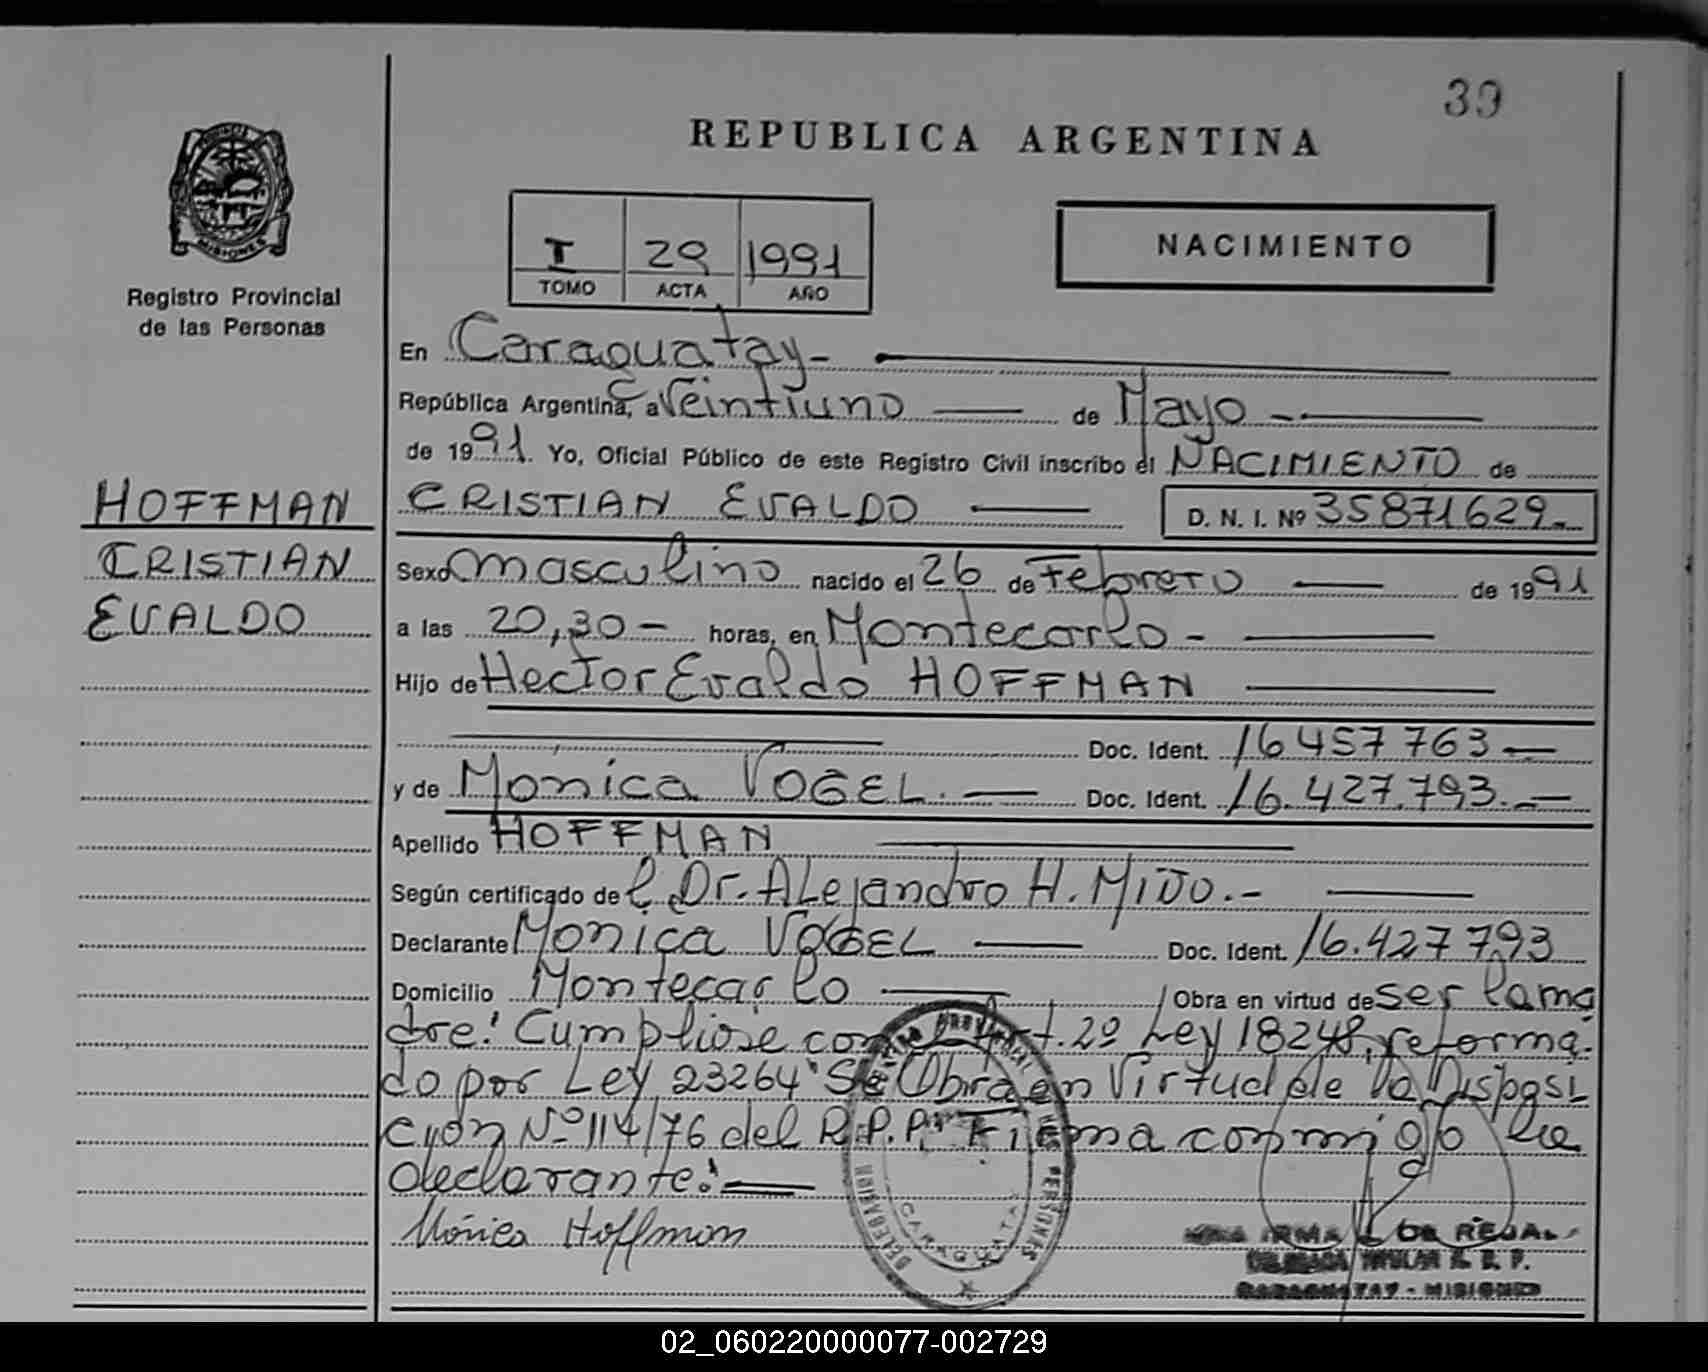 39
REPUBLICA ARGENTINA
MISIONES
Registro Provincial
de las Personas
I 29 1991
TOMO ACTA AÑO
NACIMIENTO
En Caraguatay-
República Argentina, a Veintiuno de Mayo -
de 1991. Yo, Oficial Público de este Registro Civil inscribo el NACIMIENTO de
HOFFMAN
CRISTIAN
EVALDO
CRISTIAN EVALDO D. N. I. Nº 35871629-
Sexo masculino nacido el 26 de Febrero de 1991
a las 20,30- horas, en Montecarlo -
Hijo de Hector Evaldo HOFFMAN
Doc. Ident. 16457763-
y de Mónica VOGEL. Doc. Ident. 16.427.793.-
Apellido HOFFMAN
Según certificado de Dr. Alejandro H.
Declarante Monica VOGEL Doc. Ident. 16.427793
Domicilio Montecarlo Obra en virtud de ser la ma
dre! Cumpliose con el Art. 2º Ley 18248, reforma-
do por Ley 23264 Se Obra en Virtud de la Disposi
cyón Nº 114/76 del R.P.P. Firma conmigo la
declarante!
Mónica Hoffman
PERSONAS
IRMA DE REJALA
TITULAR R. P. P.
CARAGUATAY - MISIONES
02_060220000077-002729